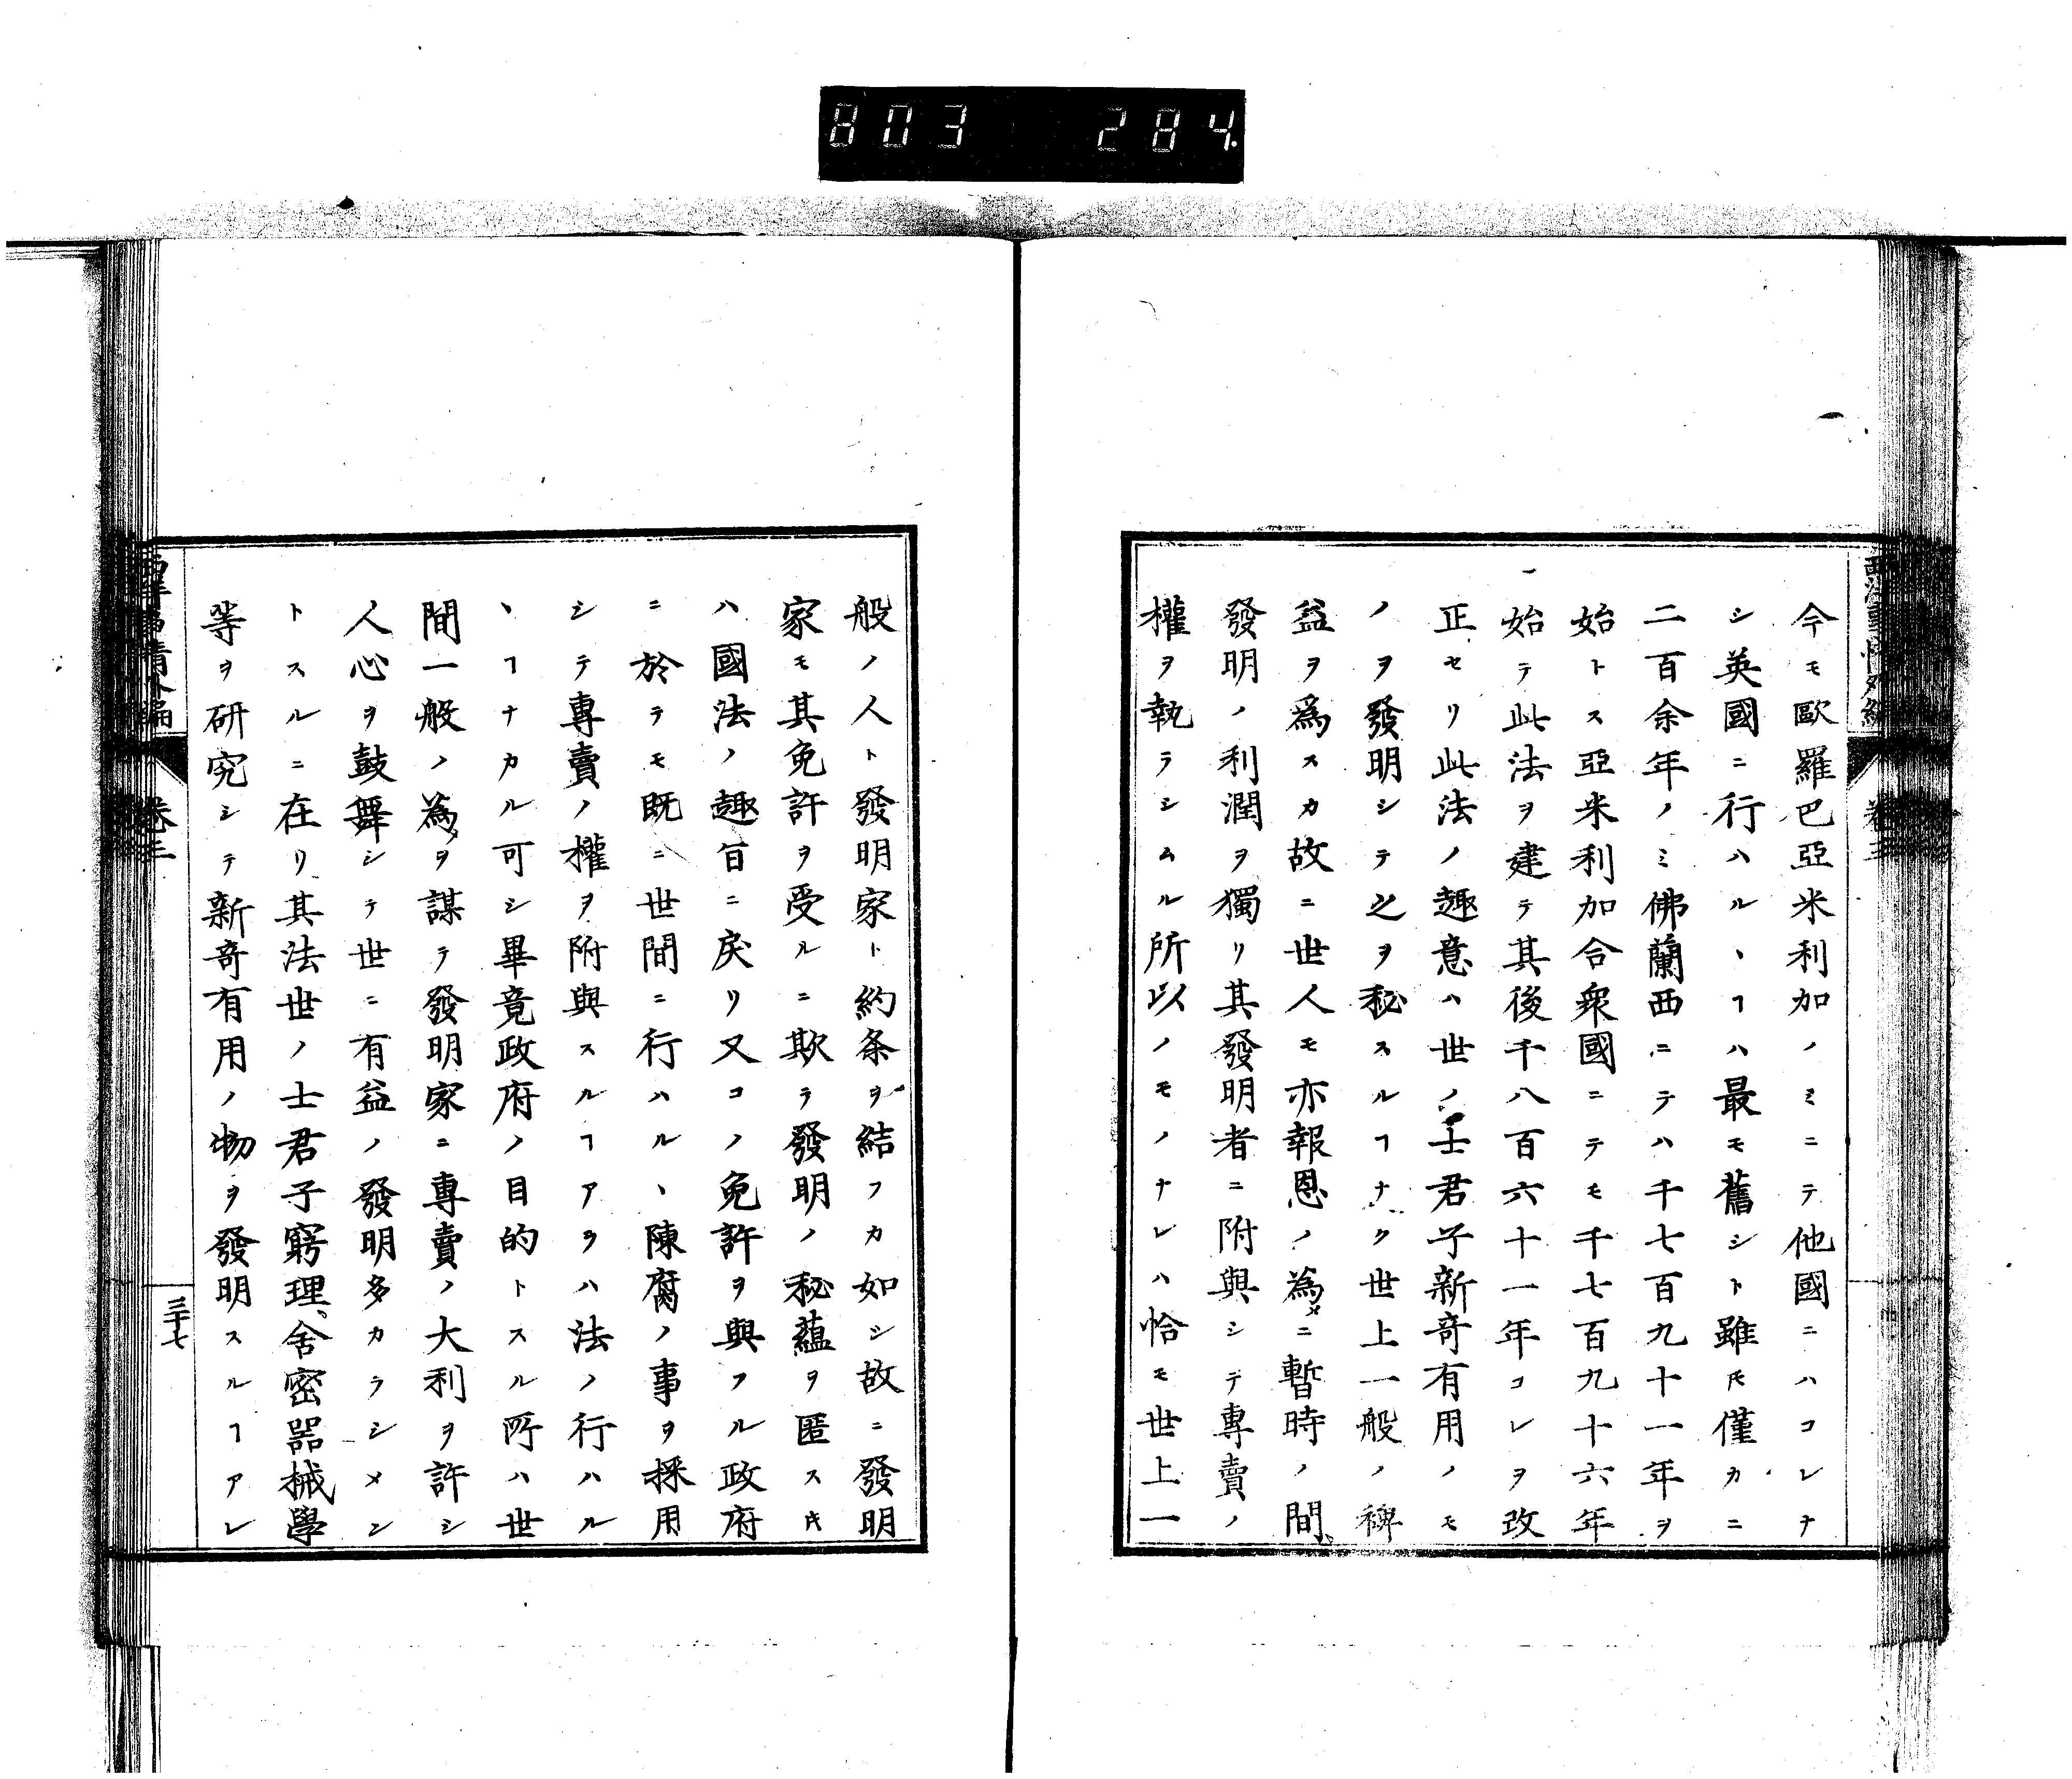 803 284.
西洋事情外編
卷三
今モ歐羅巴亞米利加ノミニテ他國ニハコレナ
シ英國ニ行ハルヽヿハ最モ舊シト雖𪜈僅カニ
二百余年ノミ佛蘭西ニテハ千七百九十一年ヲ
始トス亞米利加合衆國ニテモ千七百九十六年
始テ此法ヲ建テ其後千八百六十一年コレヲ改
正セリ此法ノ趣意ハ世ノ士君子新奇有用ノモ
ノヲ發明シテ之ヲ秘スルヿナク世上一般ノ裨
益ヲ爲スカ故ニ世人モ亦報恩ノ為メニ暫時ノ間、
發明ノ利潤ヲ獨リ其發明者ニ附與シテ專賣ノ
權ヲ執ラシムル所以ノモノナレハ恰モ世上一
般ノ人ト發明家ト約条ヲ結フカ如シ故ニ發明
家モ其免許ヲ受ルニ欺テ發明ノ秘蘊ヲ匿スキ
ハ國法ノ趣旨ニ戾リ又コノ免許ヲ與フル政府
ニ於テモ既ニ世間ニ行ハルヽ陳腐ノ事ヲ採用
シテ專賣ノ權ヲ附與スルヿアラハ法ノ行ハル
ヽヿナカル可シ畢竟政府ノ目的トスル所ハ世
間一般ノ為メヲ謀テ發明家ニ專賣ノ大利ヲ許シ
人心ヲ鼓舞シテ世ニ有益ノ發明多カラシメン
トスルニ在リ其法世ノ士君子窮理、舍密器械學
等ヲ研究シテ新奇有用ノ物ヲ發明スルヿアレ
西洋事情外編
卷三
三十七